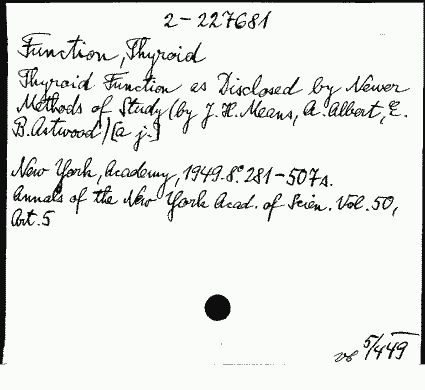 2-227681
Function, Thyroid
Thyroid Function as Disclosed by Newer
Methods of Study (by J. H. Means, A. Albert, E.
B. Astwood) [a j.]
New York, Academy, 1949. 8° 281-507s.
Annals of the New York Acad. of Scien. Vol. 50,
Art. 5
5/449